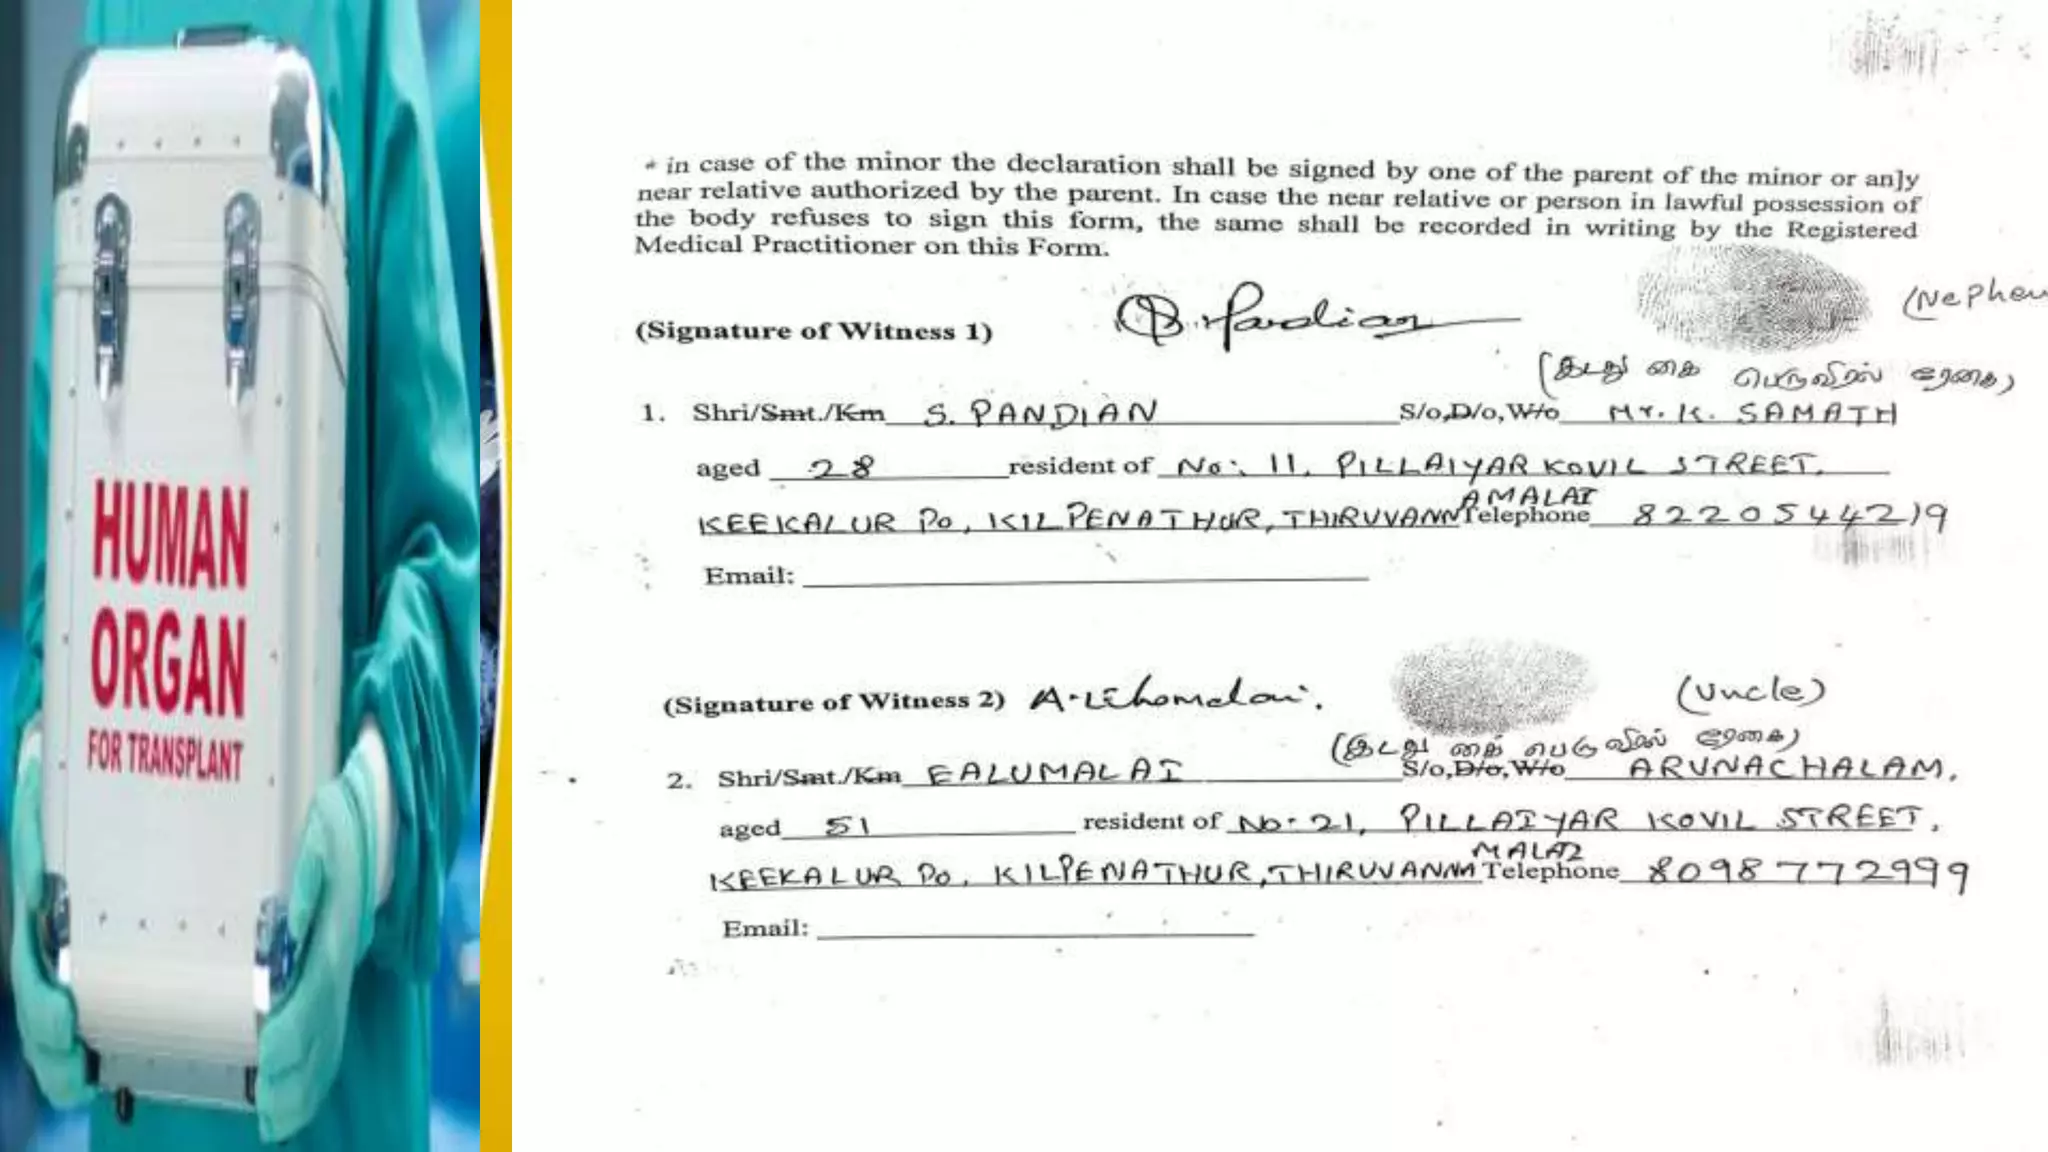 HUMAN
ORGAN
FOR TRANSPLANT
* in case of the minor the declaration shall be signed by one of the parent of the minor or an]y
near relative authorized by the parent. In case the near relative or person in lawful possession of
the body refuses to sign this form, the same shall be recorded in writing by the Registered
Medical Practitioner on this Form.
(Signature of Witness 1) Pandian (Nephew
(இடது கை பெருவிரல் ரேகை)
1. Shri/Smt./Km S. PANDIAN S/o,D/o,W/o Mr. K. SAMATH
aged 28 resident of No: 11, PILLAIYAR KOVIL STREET,
AMALAI
KEEKALUR Po, KILPENATHUR, THIRUVANN Telephone 8220544219
Email:
(Signature of Witness 2) (Uncle)
(இடது கை பெருவிரல் ரேகை)
2. Shri/Smt./Km EALUMALAI S/o,D/o,W/o ARUNACHALAM.
aged 51 resident of No: 21, PILLAIYAR KOVIL STREET,
MALAI
KEEKALUR Po, KILPENATHUR, THIRUVANNA Telephone 8098772999
Email: